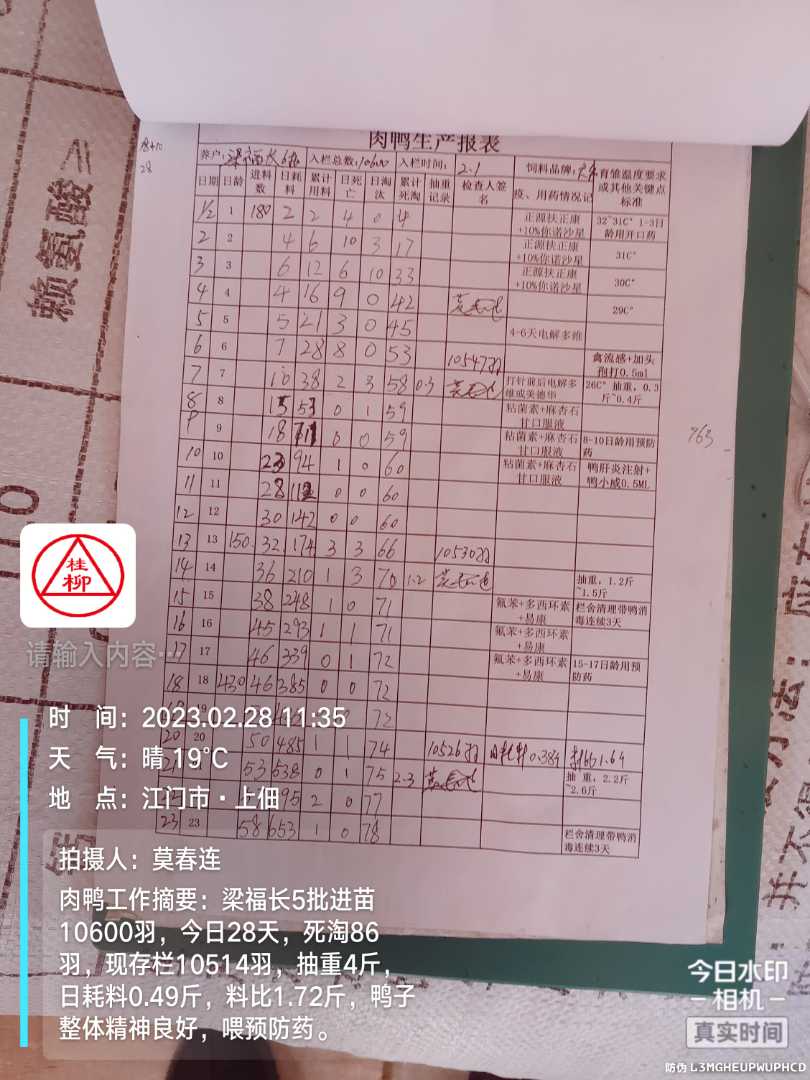 肉鸭生产报表
养户: 梁福长 入栏总数: 10600 入栏时间: 2.1 饲料品牌: 育雏温度要求或其他关键点标准
日期 日龄 进料数 日耗料 累计用料 日死亡 日淘汰 累计死淘 抽重记录 检查人签名 疫、用药情况记
1/2 1 180 2 2 4 0 4 正源扶正康+10%你诺沙星 32~31C° 1-3日龄用开口药
2 2 4 6 10 3 17 正源扶正康+10%你诺沙星 31C°
3 3 6 12 6 10 33 正源扶正康+10%你诺沙星 30C°
4 4 4 16 9 0 42 29C°
5 5 5 21 3 0 45 4-6天电解多维
6 6 7 28 8 0 53 10547羽 禽流感+加头孢打0.5ml
7 7 10 38 2 3 58 0.3 打针前后电解多维或美德华 26C° 抽重,0.3斤~0.4斤
8 8 15 53 0 1 59 粘菌素+麻杏石甘口服液
9 9 18 71 0 0 59 粘菌素+麻杏石甘口服液 8-10日龄用预防药
10 10 23 94 1 0 60 粘菌素+麻杏石甘口服液 鸭肝炎注射+鸭小威0.5ML
11 11 28 112 0 0 60
12 12 30 142 0 0 60
13 13 150 32 174 3 3 66 10530羽
14 14 36 210 1 3 70 1.2 抽重,1.2斤~1.5斤
15 15 38 248 1 0 71 氟苯+多西环素+易康 栏舍清理带鸭消毒连续3天
16 16 45 293 1 1 71 氟苯+多西环素+易康
17 17 46 339 0 1 72 氟苯+多西环素+易康 15-17日龄用预防药
18 18 430 46 385 0 0 72
19 72
20 20 50 485 1 1 74 10526羽 日耗料0.384 料比1.64
53 538 0 1 75 2.3 抽重,2.2斤~2.6斤
95 2 0 77
23 23 58 653 1 0 78 栏舍清理带鸭消毒连续3天
28
763
赖氨酸≥
桂柳
请输入内容…
时 间: 2023.02.28 11:35
天 气: 晴 19℃
地 点: 江门市·上佃
拍摄人: 莫春连
肉鸭工作摘要: 梁福长5批进苗
10600羽,今日28天,死淘86
羽,现存栏10514羽,抽重4斤,
日耗料0.49斤,料比1.72斤,鸭子
整体精神良好,喂预防药。
今日水印
相机
真实时间
防伪 L3MGHEUPWUPHCD